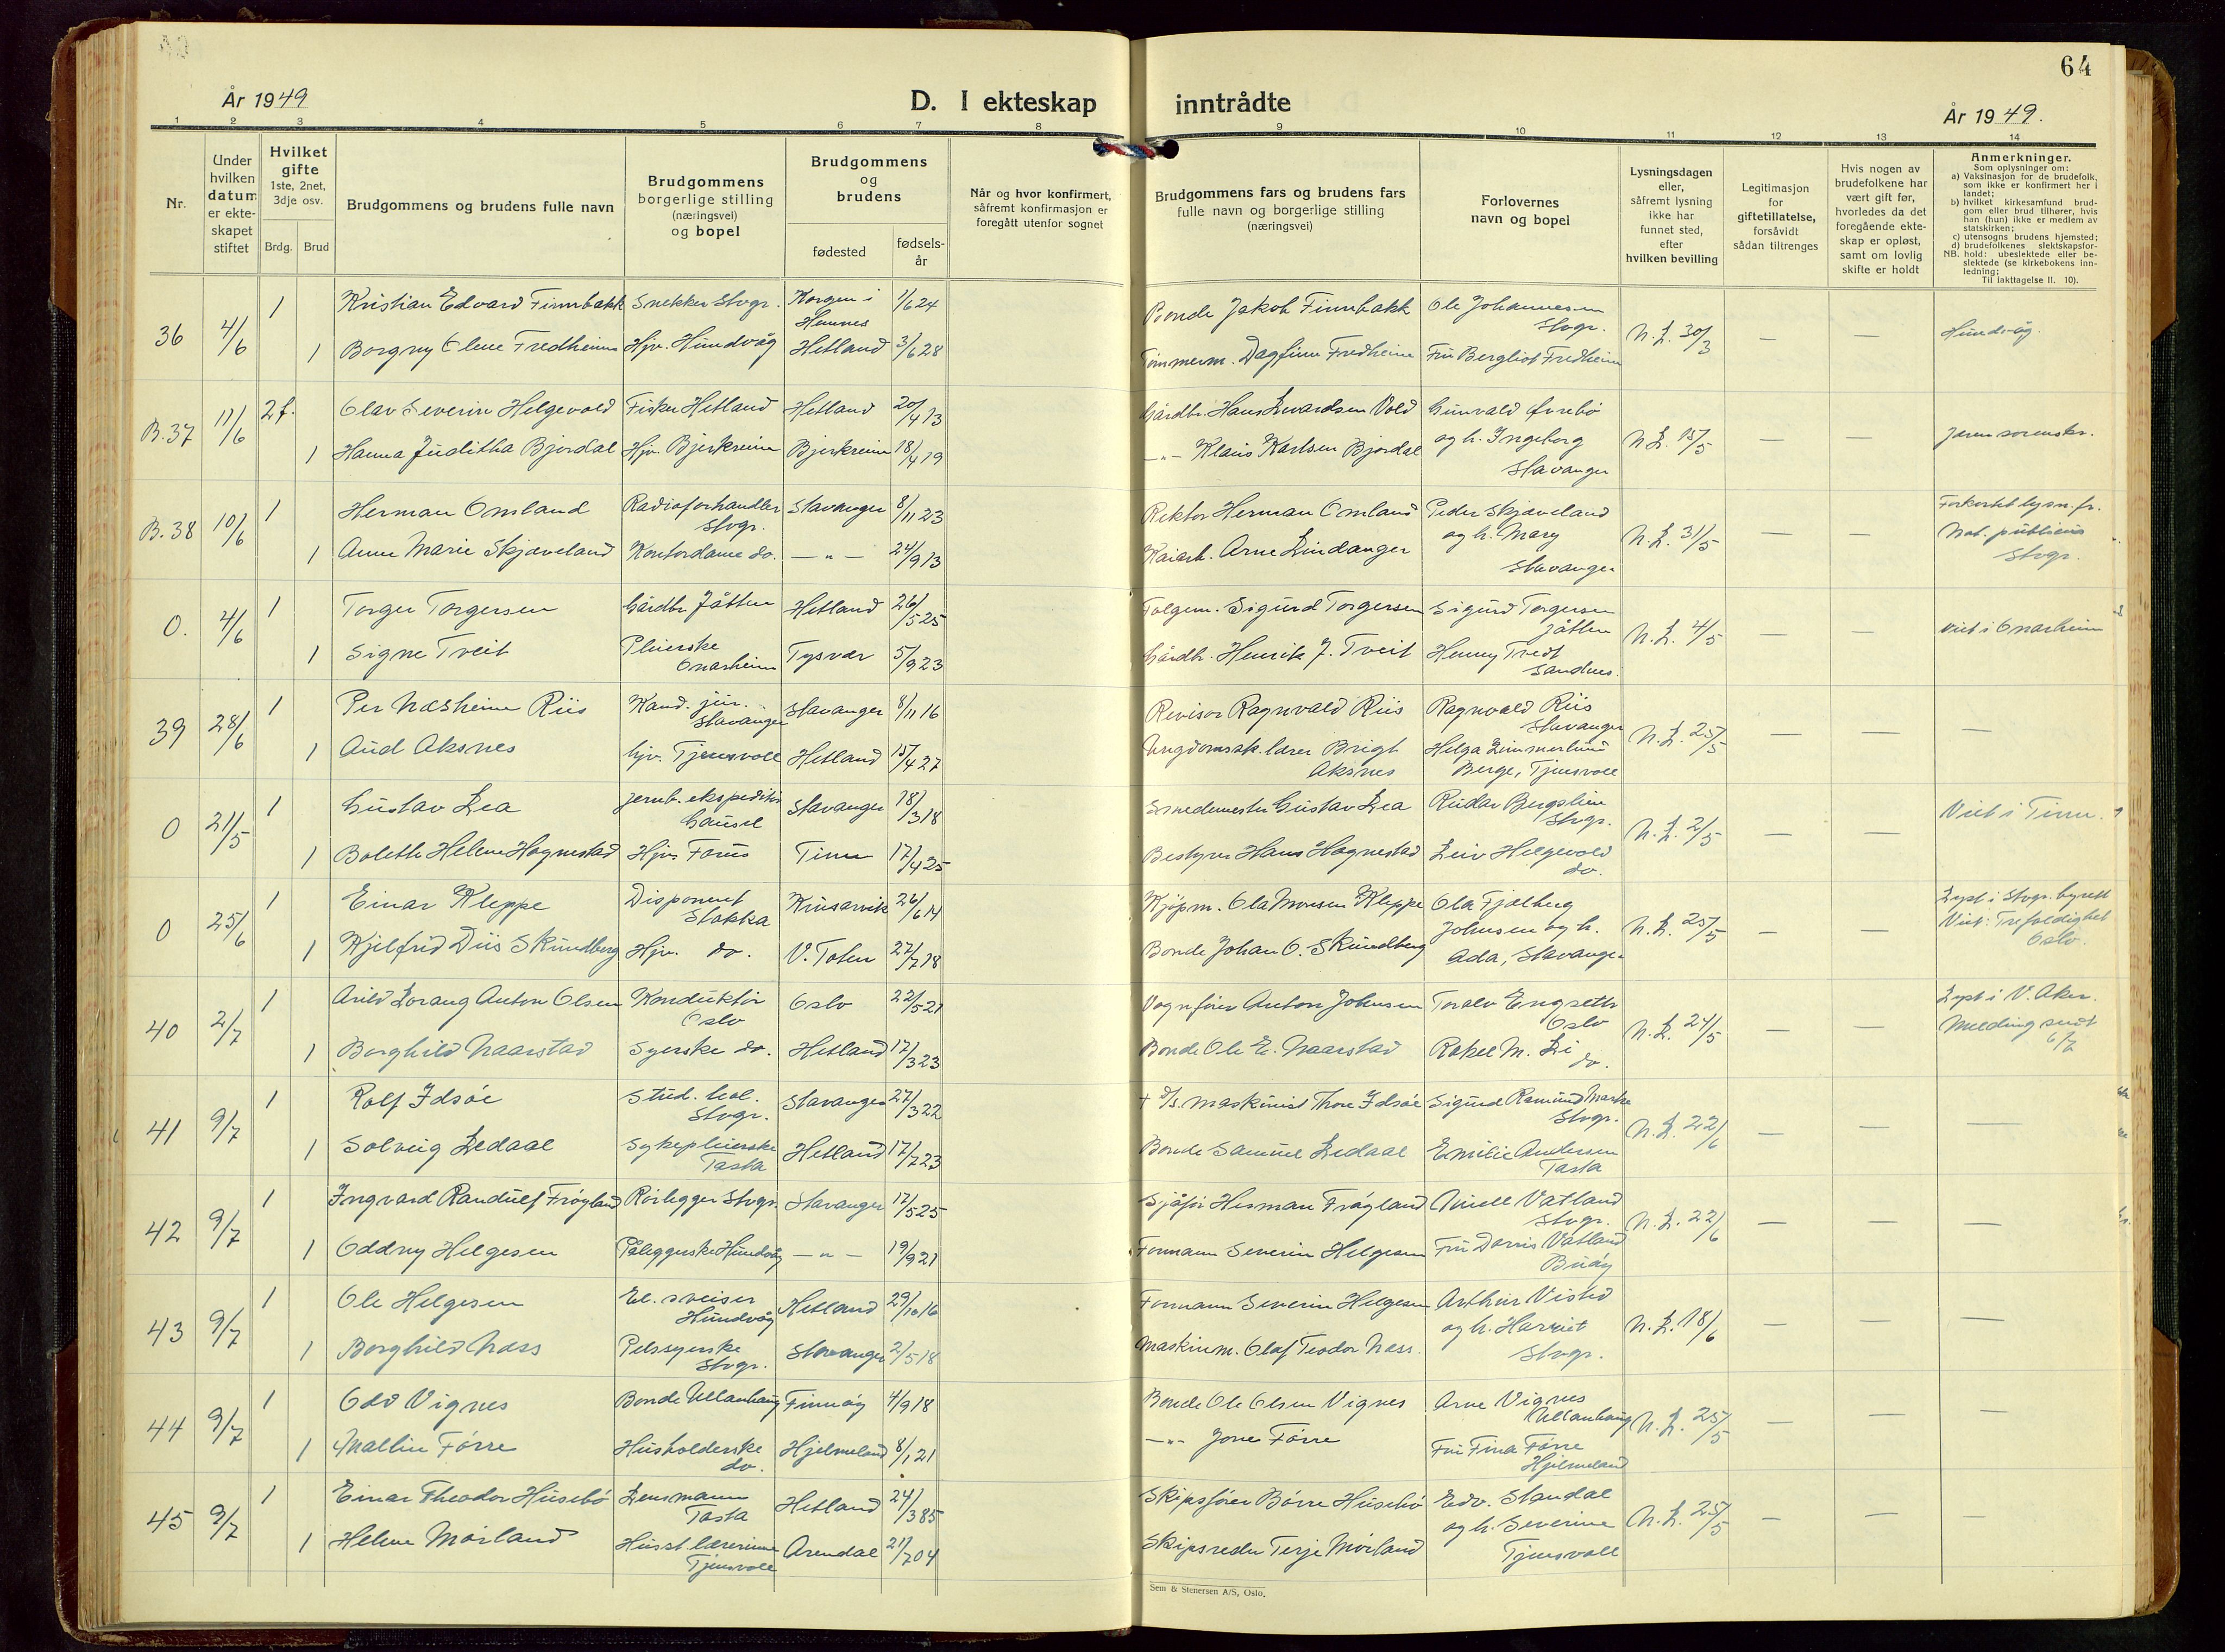 64
År 1949
D. I ekteskap inntrådte
År 1949.
1 2 3 4 5 6 7 8 9 10 11 12 13 14
Nr.
Under hvilken datum er ekteskapet stiftet
Hvilket gifte 1ste, 2net, 3dje osv.
Brdg. Brud
Brudgommens og brudens fulle navn
Brudgommens borgerlige stilling (næringsvei) og bopel
Brudgommens og brudens
fødested
fødselsår
Når og hvor konfirmert, såfremt konfirmasjon er foregått utenfor sognet
Brudgommens fars og brudens fars fulle navn og borgerlige stilling (næringsvei)
Forlovernes navn og bopel
Lysningsdagen eller, såfremt lysning ikke har funnet sted, efter hvilken bevilling
Legitimasjon for giftetillatelse, forsåvidt sådan tiltrenges
Hvis nogen av brudefolkene har vært gift før, hvorledes da det foregående ekteskap er opløst, samt om lovlig skifte er holdt
Anmerkninger.
Som oplysninger om:
a) Vaksinasjon for de brudefolk, som ikke er konfirmert her i landet;
b) hvilket kirkesamfund brudgom eller brud tilhører, hvis han (hun) ikke er medlem av statskirken;
c) utensogns brudens hjemsted;
d) brudefolkenes slektskapsforhold: ubeslektede eller beslektede (se kirkebokens innledning;
NB.
Til iakttagelse II. 10).
36 4/6 1 Kristian Edvard Finnbakk Snekker Stvgr. Korgen i Hemnes 1/6 24 Bonde Jakob Finnbakk Ole Johannesen Stvgr. N.L. 30/3 — — Hundvåg.
1 Borgny Elene Fredheim Hjv. Hundvåg Hetland 3/6 28 Tømmerm. Dagfinn Fredheim Fru Bergliot Fredheim
B.37 11/6 2f. Olav Severin Helgevold Fisker Hetland Hetland 20/4 13 Gårdbr. Hans Edvardsen Vold Gunvald Øvrebø N.L. 15/5 — — Jæren sorenskr.
1 Hanna Juditha Bjordal Hjv. Bjerkreim Bjerkreim 18/4 19 —"— Klaus Karlsen Bjordal og h. Ingeborg Stavanger
B.38 10/6 1 Herman Omland Radioforhandler Stvgr. Stavanger 8/11 23 Rektor Herman Omland Peder Skjæveland N.L. 31/5 — — Forkortet lysn. fr. Not. publicus Stvgr.
1 Anne Marie Skjæveland Kontordame do. —"— 24/9 13 Kaiarb. Arne Lindanger og h. Mary Stavanger
0. 4/6 1 Torger Torgersen Gårdbr. Jåtten Hetland 26/5 25 Tolgem. Sigurd Torgersen Sigurd Torgersen Jåtten N.L. 4/5 — — Viet i Onarheim
1 Signe Tveit Pleierske Onarheim Tysvær 5/9 23 Gårdb. Henrik J. Tveit Henny Tvedt Sandnes.
39 28/6 1 Per Næsheim Riis Kand. jur. Stavanger Stavanger 8/11 16 Revisor Ragnvald Riis Ragnvald Riis Stavanger N.L. 25/5 — — —
1 Aud Aksnes hjv. Tjensvoll Hetland 15/4 27 Ungdomssk. lærer Brigt Aksnes Helga Limmerlund Berge, Tjensvoll
0 21/5 1 Gustav Lea Jernb. ekspeditør Gausel Stavanger 18/3 18 Smedemester Gustav Lea Reidar Bergslien Stvgr. N.L. 2/5 — — Viet i Time.
1 Bolette Helene Hognestad Hjv. Forus Time 17/4 25 Bestyrer Hans Hognestad Leiv Helgevold do.
0 25/6 1 Einar Kleppe Disponent Stokka Krusarvik 26/6 14 Kjøpm. Ola Monsen Kleppe Ola Fjælberg N.L. 25/5 — — Lyst i Stvgr. byrett Viet: Trefoldighet Oslo.
1 Kjelfrid Diis Skundberg Hjv. do. V. Toten 27/7 18 Bonde Johan O. Skundberg Johnsen og h. Ada, Stavanger
40 2/7 1 Arild Lorang Anton Olsen Konduktør Oslo Oslo 22/5 21 Vognfører Anton Johnsen Toralv Engseth Oslo N.L. 24/5 — — Lyst i V. Aker. Melding sendt 6/7
1 Borghild Naarstad Syerske do. Hetland 17/3 23 Bonde Ole E. Naarstad Rakel M. Li do.
41 9/7 1 Rolf Idsøe Stud. real. Stvgr. Stavanger 27/3 22 + D/s. maskinist Thore Idsøe Sigurd Ramund Marke Stvgr. N.L. 22/6 — — —
1 Solveig Ledaal Sykepleierske Tasta Hetland 17/7 23 Bonde Samuel Ledaal Emilie Andersen Tasta
42 9/7 1 Ingvard Randulf Frøyland Rørlegger Stvgr. Stavanger 17/5 25 Sjåfør Herman Frøyland Aniell Vatland Stvgr. N.L. 22/6 — — —
1 Oddny Helgesen Påleggerske Hundvåg —"— 19/9 21 Formann Severin Helgesen Fru Dorris Vatland Buøy
43 9/7 1 Ole Helgesen El. sveiser Hundvåg Hetland 29/10 16 Formann Severin Helgesen Arthur Visted N.L. 18/6 — — —
1 Borghild Næss Pelssyerske Stvgr. Stavanger 2/5 18 Maskinm. Olaf Teodor Næss. og h. Harriet Stvgr.
44 9/7 1 Odd Vignes Bonde Ullanhaug Finnøy 4/9 18 Bonde Ole Olsen Vignes Arne Vignes Ullanhaug N.L. 25/5 — — —
1 Mallin Førre Husholderske do. Hjelmeland 8/1 21 —"— Jone Førre Fru Fina Førre Hjelmeland
45 9/7 1 Einar Theodor Husebø Lensmann Tasta Hetland 24/3 85 Skipsfører Børre Husebø Edv. Standal N.L. 25/5 — — —
1 Helene Mørland Husst. lærerinne Tjensvoll Arendal 21/7 04 Skipsreder Terje Mørland og h. Severine Tjensvoll
Sem & Stenersen A/S, Oslo.